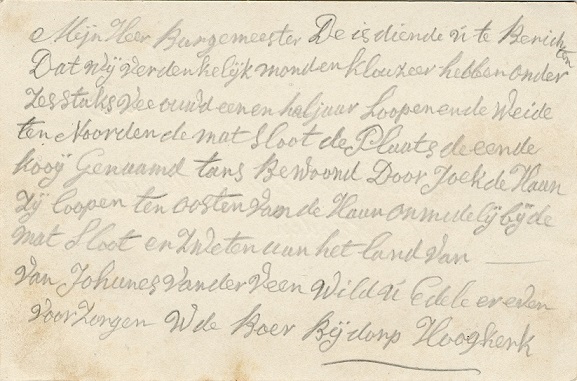 Mijn Heer Burgemeester De is diende ú te Berichten
Dat wij verdenkelijk mond en klouzeer hebben onder
zes stuks vee ouwd een en hal jaar Loopenende weide
ten Noorden de mat sloot de Plaats de eende
kooij Genaamd tans Bewoond Door Joek de Haan
zij loopen ten oosten van de Haan onmidelijbij de
mat Sloot en zweten aan het land van
van Johanes vander veen wild ú Edele er even
voor zorgen W de Boer Bijdorp Hoogkerk